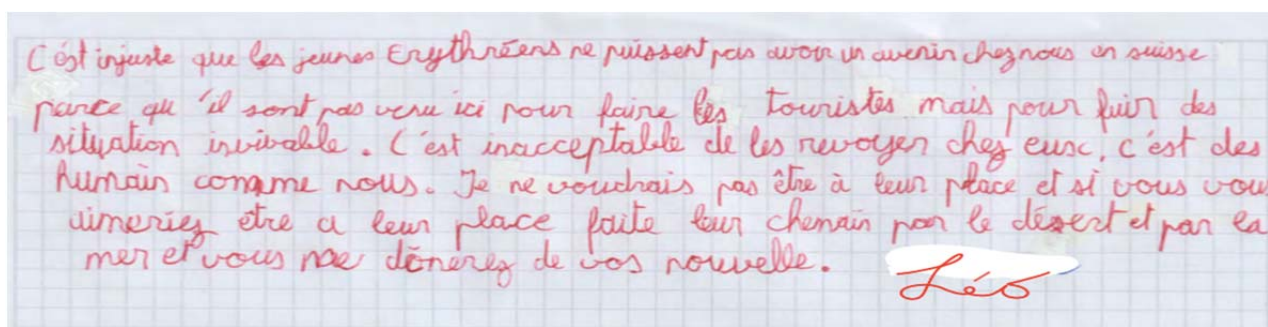 C'est injuste que les jeunes Erythréens ne puissent pas avoir un avenir chez nous en suisse
parce qu'il sont pas venu ici pour faire les touristes mais pour fuir des
situation invivable. C'est inacceptable de les revoyer chez eusc, c'est des
humain comme nous. Je ne voudrais pas être à leur place et si vous vou
aimeriez etre a leur place faite leur chemain par le désert et par la
mer et vous me dönerez de vos nouvelle.
Léo